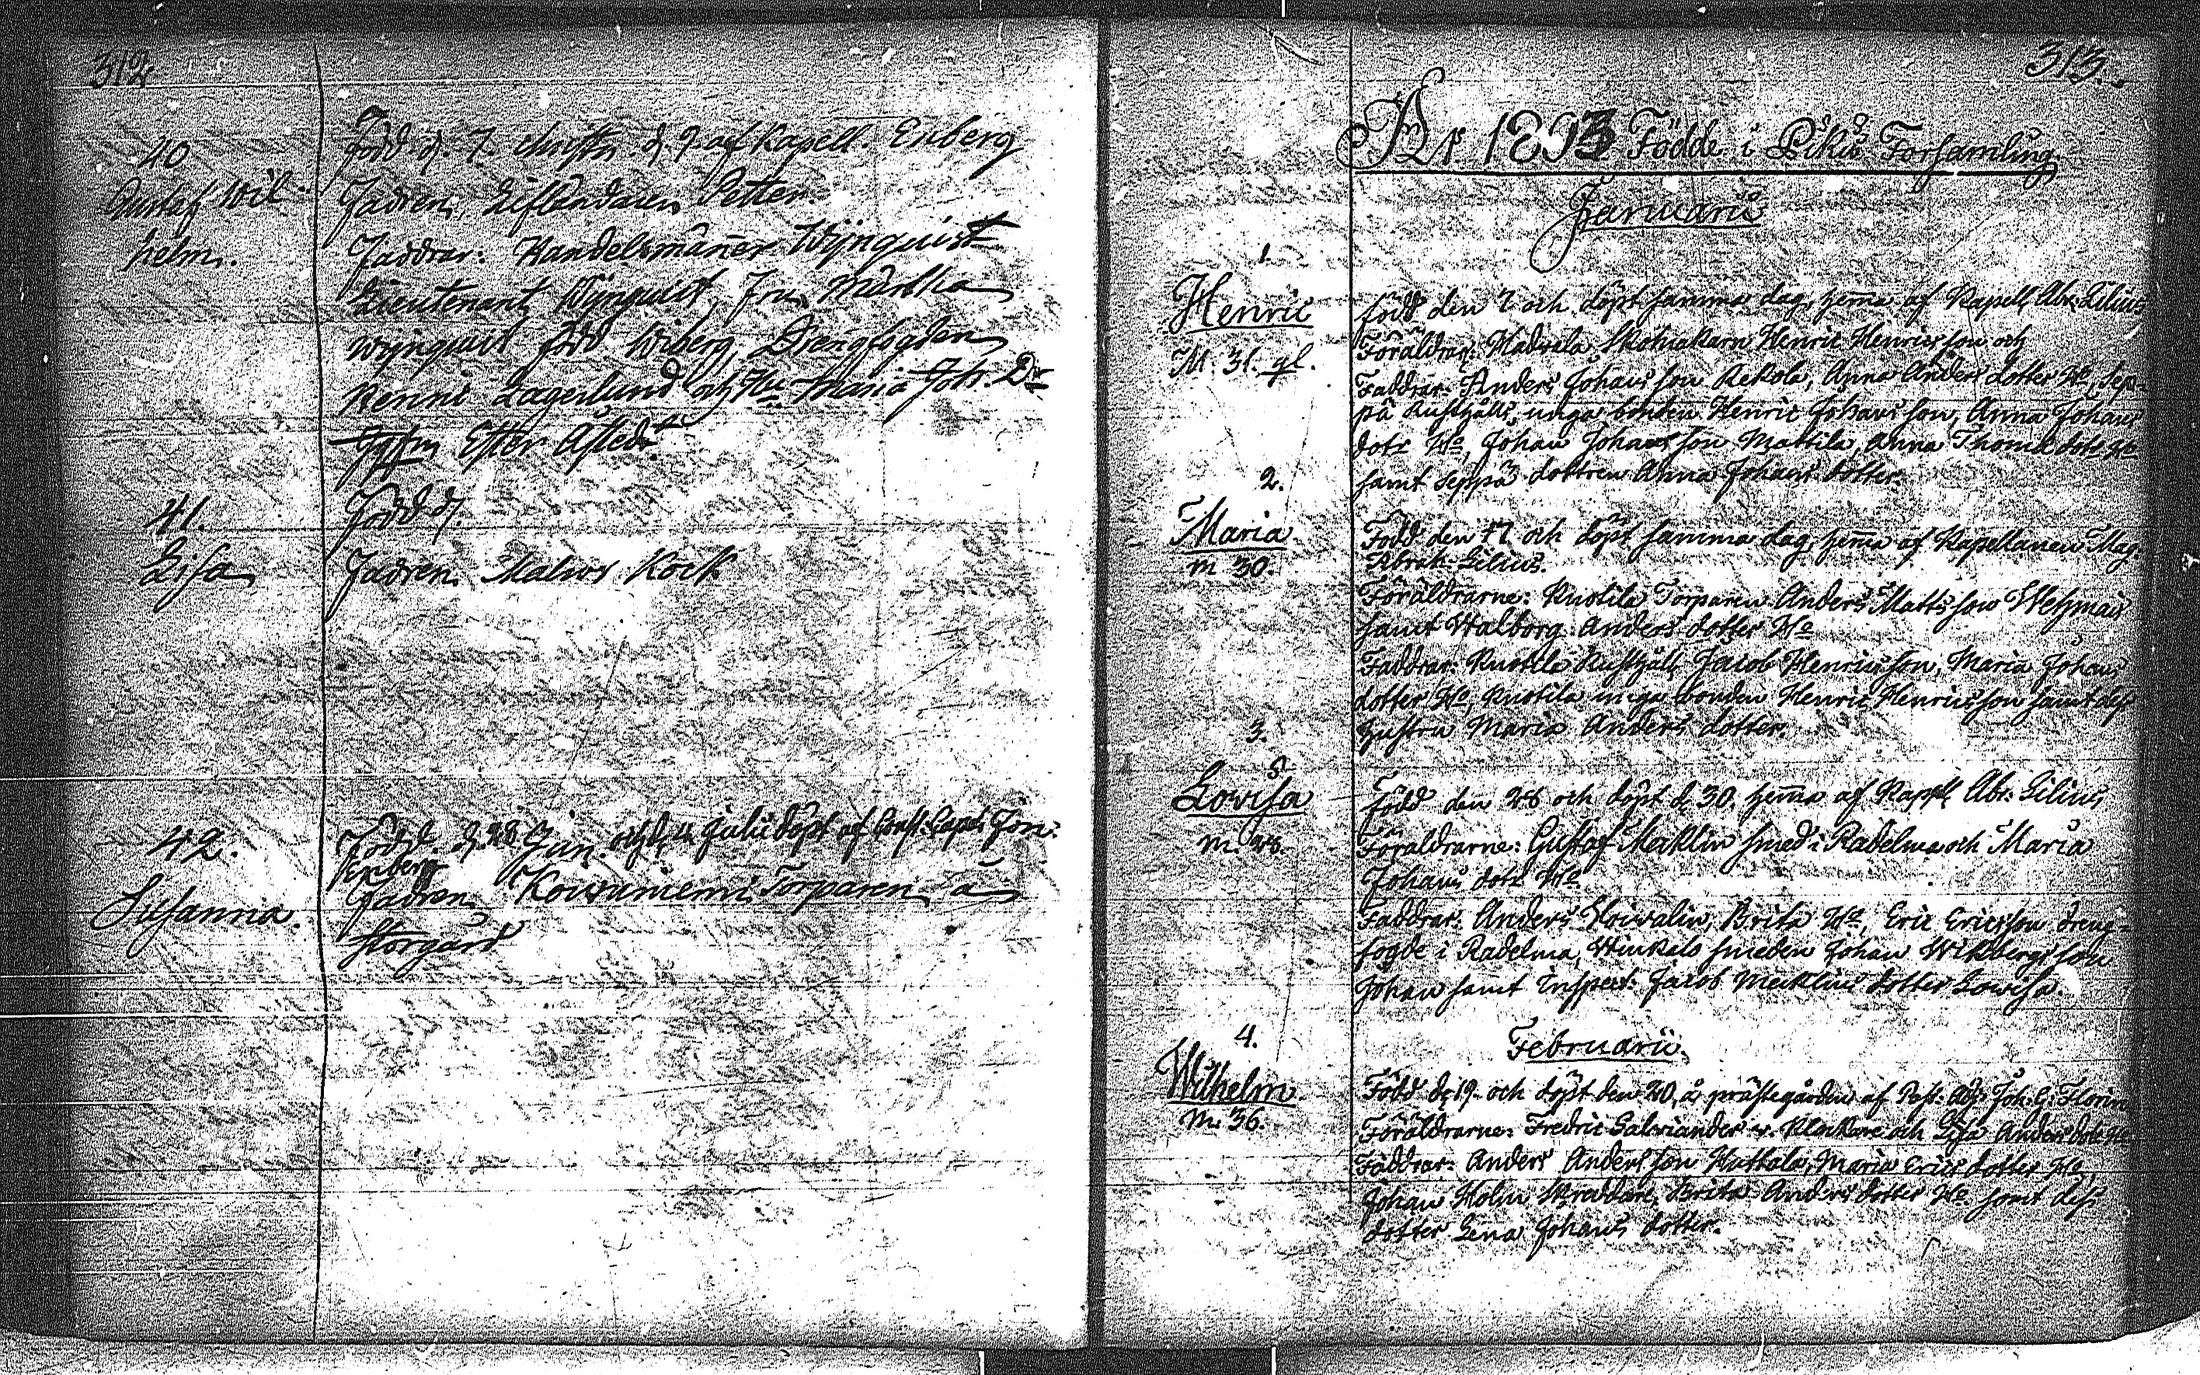 312
40
Gustaf Wil-
helm.
Född d. 7. christn d. 9 af Kapell. Enberg
Fadren,  Petter.
Faddrar: Handelsmanner Wijnquist
Lieutenant Wijnquist, Fru Martha
Wijnquist född Wiberg, Drengfogden
Henric Lagerlund och Hu Maria Joh. Dr
Efter Afled:
41.
Lisa
Född d.
Fadren Malmos Kock
42.
Susanna.
Född. d. 28 Jun. och d. 4 Julii döpt af Const. Capel. Jon.
Enberg
Fadren Koivuniemi Torparen å
Storgård
313.
År 1803 Födde i Pikis Församling.
Januarii
1.
Henric
M. 31. gl.
född den 7 och döpt samma dag, hema af Kapell. Abr. Lilius
Föräldrar: Madisela Skomakarn Henric Henricsson och
Faddrar: Anders Johansson Rekola, Anna Anders dotter Ho, Sep-
på Rusthålls unga bonden Henric Johansson, Anna Johans
dotr Ho, Johan Johansson Mattila, Anna Thomæ dotr Ho
samt Seppä dottren Anna Johans dotter.
2.
Maria
m 30.
Född den 17 och döpt samma dag hema af Kapellanen Mag.
Abrah: Lilius.
Föräldrarne: Knotila Torparen Anders Mattsson Wehmais
samt Walborg Anders dotter Ho
Faddrar: Knotila Rusthåll. Jacob Henricsson, Maria Johans
dotter Ho, Knotila unga bonden Henric Henricsson samt dess
hustru Maria Anders dotter.
3.
Lovisa
m 28.
Född den 28 och döpt d. 30. hema af Kapell. Abr. Lilius
Föräldrarne: Gustaf Mecklin smed i Radelma och Maria
Johans dotr Ho
Faddrar: Anders Hoivalin, Brita Ho, Eric Ericsson dreng-
fogde i Radelma, Winkals smeden Johan Wikbergs son
Johan samt Inspect: Jacob Mecklins dotter Lovisa.
Februarii.
4.
Wilhelm
m. 36.
Född d. 19. och döpt den 20, å prästegården af Past: Adj: Joh. G: Florin
Föräldrarne: Fredric Salviander v. Klockare och Lisa Anders dotr Ho
Faddrar: Anders Andersson Huttala, Maria Erics dotter Ho,
Johan Holm Skreddare, Brita Anders dotter Ho samt dess
dotter Lena Johans dotter.